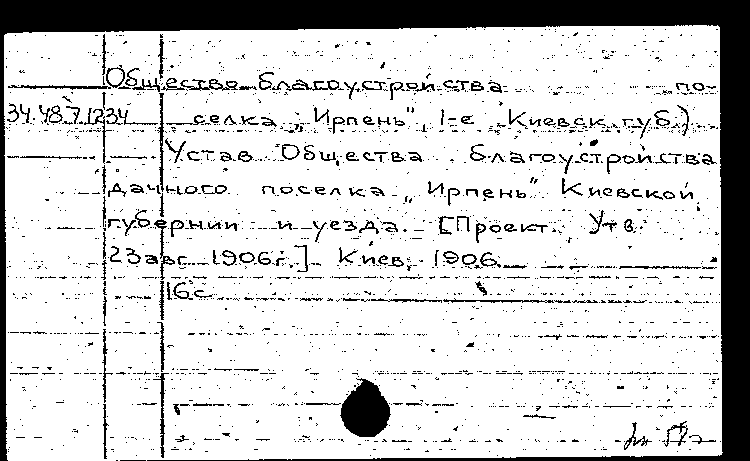 Общество благоустройства по-
34.48.7.1234 селка „Ирпень", 1-е Киевск.губ.)
Устав Общества благоустройства
дачного поселка „Ирпень" Киевской
губернии и уезда. [Проект. Утв.
23 авг. 1906г.] Киев, 1906.
16с